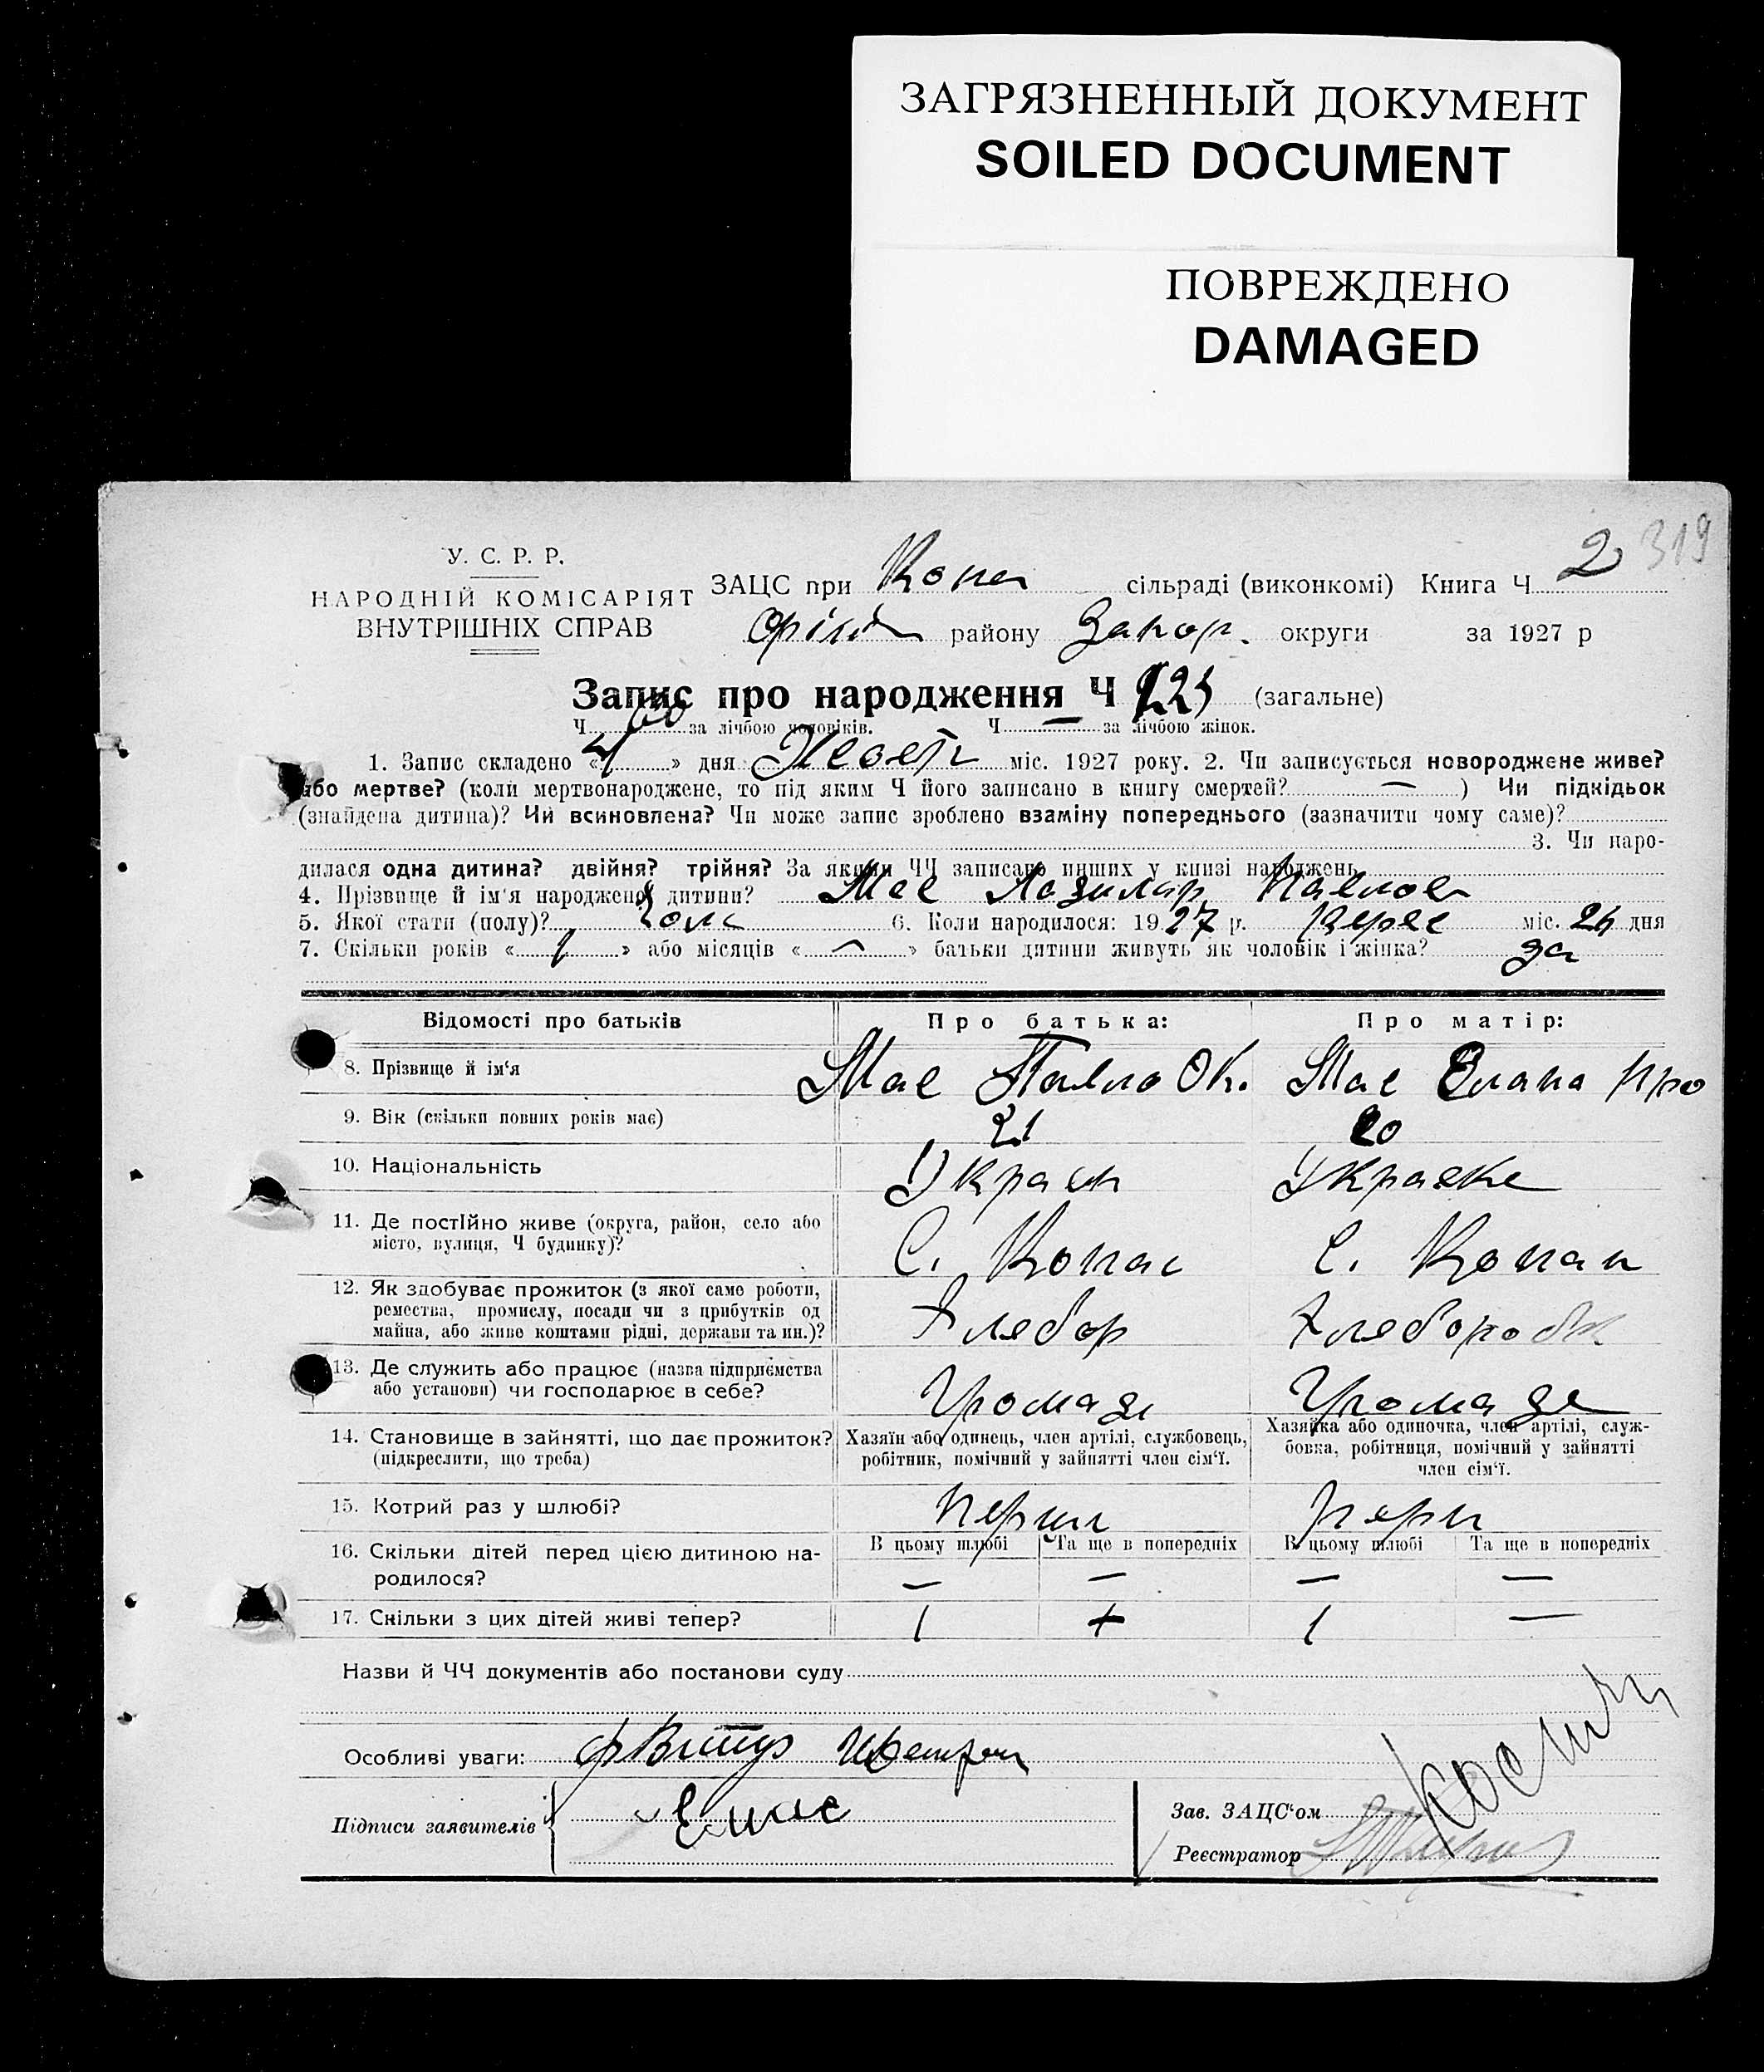 ЗАГРЯЗНЕННЫЙ ДОКУМЕНТ
SOILED DOCUMENT
ПОВРЕЖДЕНО
DAMAGED
2 319
У. С. Р. Р.
НАРОДНІЙ КОМІСАРІЯТ
ВНУТРІШНІХ СПРАВ
ЗАЦС при Копа сільраді (виконкомі) Книга Ч
Оріх району Запор. округи за 1927 р
Запис про народження Ч 125 (загальне)
Ч 60 за лічбою чоловіків. Ч — за лічбою жінок.
1. Запис складено «4» дня Жовт міс. 1927 року. 2. Чи записується новороджене живе?
або мертве? (коли мертвонароджене, то під яким Ч його записано в книгу смертей? — ) Чи підкідьок
(знайдена дитина)? Чи всиновлена? Чи може запис зроблено взаміну попереднього (зазначити чому саме)?
3. Чи наро-
дилася одна дитина? двійня? трійня? За якими ЧЧ записано инших у книзі народжень
4. Прізвище й ім'я народженої дитини? Мас Павлов
5. Якої стати (полу)? Чолс 6. Коли народилося: 1927 р. міс. 26 дня
7. Скільки років «1» або місяців «—» батьки дитини живуть як чоловік і жінка? да
Відомості про батьків
Про батька:
Про матір:
8. Прізвище й ім'я Мас Павло Ок. Мас Олана Про
9. Вік (скільки повних років має) 21 20
10. Національність Украін Украекс
11. Де постійно живе (округа, район, село або С. Копас С. Копан
місто, вулиця, Ч будинку)?
12. Як здобуває прожиток (з якої само роботи,
ремества, промислу, посади чи з прибутків од Хлебор Хлебороб
майна, або живе коштами рідні, держави та ин.)?
13. Де служить або працює (назва підприємства
або установи) чи господарює в себе? Громаде Громаде
14. Становище в зайнятті, що дає прожиток?
(підкреслити, що треба)
Хазяїн або одинець, член артілі, службовець,
робітник, помічний у зайнятті член сім'ї.
Хазяйка або одиночка, член артілі, служ-
бовка, робітниця, помічний у зайнятті
член сім'ї.
15. Котрий раз у шлюбі? Перши Перш
16. Скільки дітей перед цією дитиною на-
родилося?
В цьому шлюбі Та ще в попередніх В цьому шлюбі Та ще в попередніх
— — — —
17. Скільки з цих дітей живі тепер? 1 + 1 —
Назви й ЧЧ документів або постанови суду
Особливі уваги:
Підписи заявителів Е мас
Зав. ЗАЦС'ом
Реєстратор